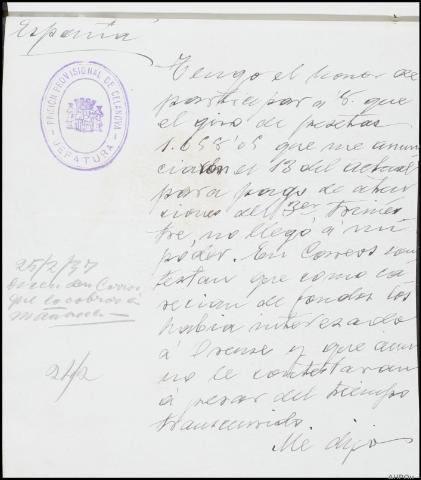 España
PRISION PROVISIONAL DE CELANOVA
JEFATURA
Tengo el honor de
participar a V. que
el giro de pesetas
que me anun
ciaron el 13 del actual
para pago de aten
ciones del 3er trimes
tre, no llegó á mi
poder. En Correos con
testan que como ca
recian de fondos los
habia interesado
á Orense y que aun
no le contestaran
á pesar del tiempo
transcurrido.
Me dijo
25/2/37
dicen en Correos
que lo cobrará
mañana
24/2